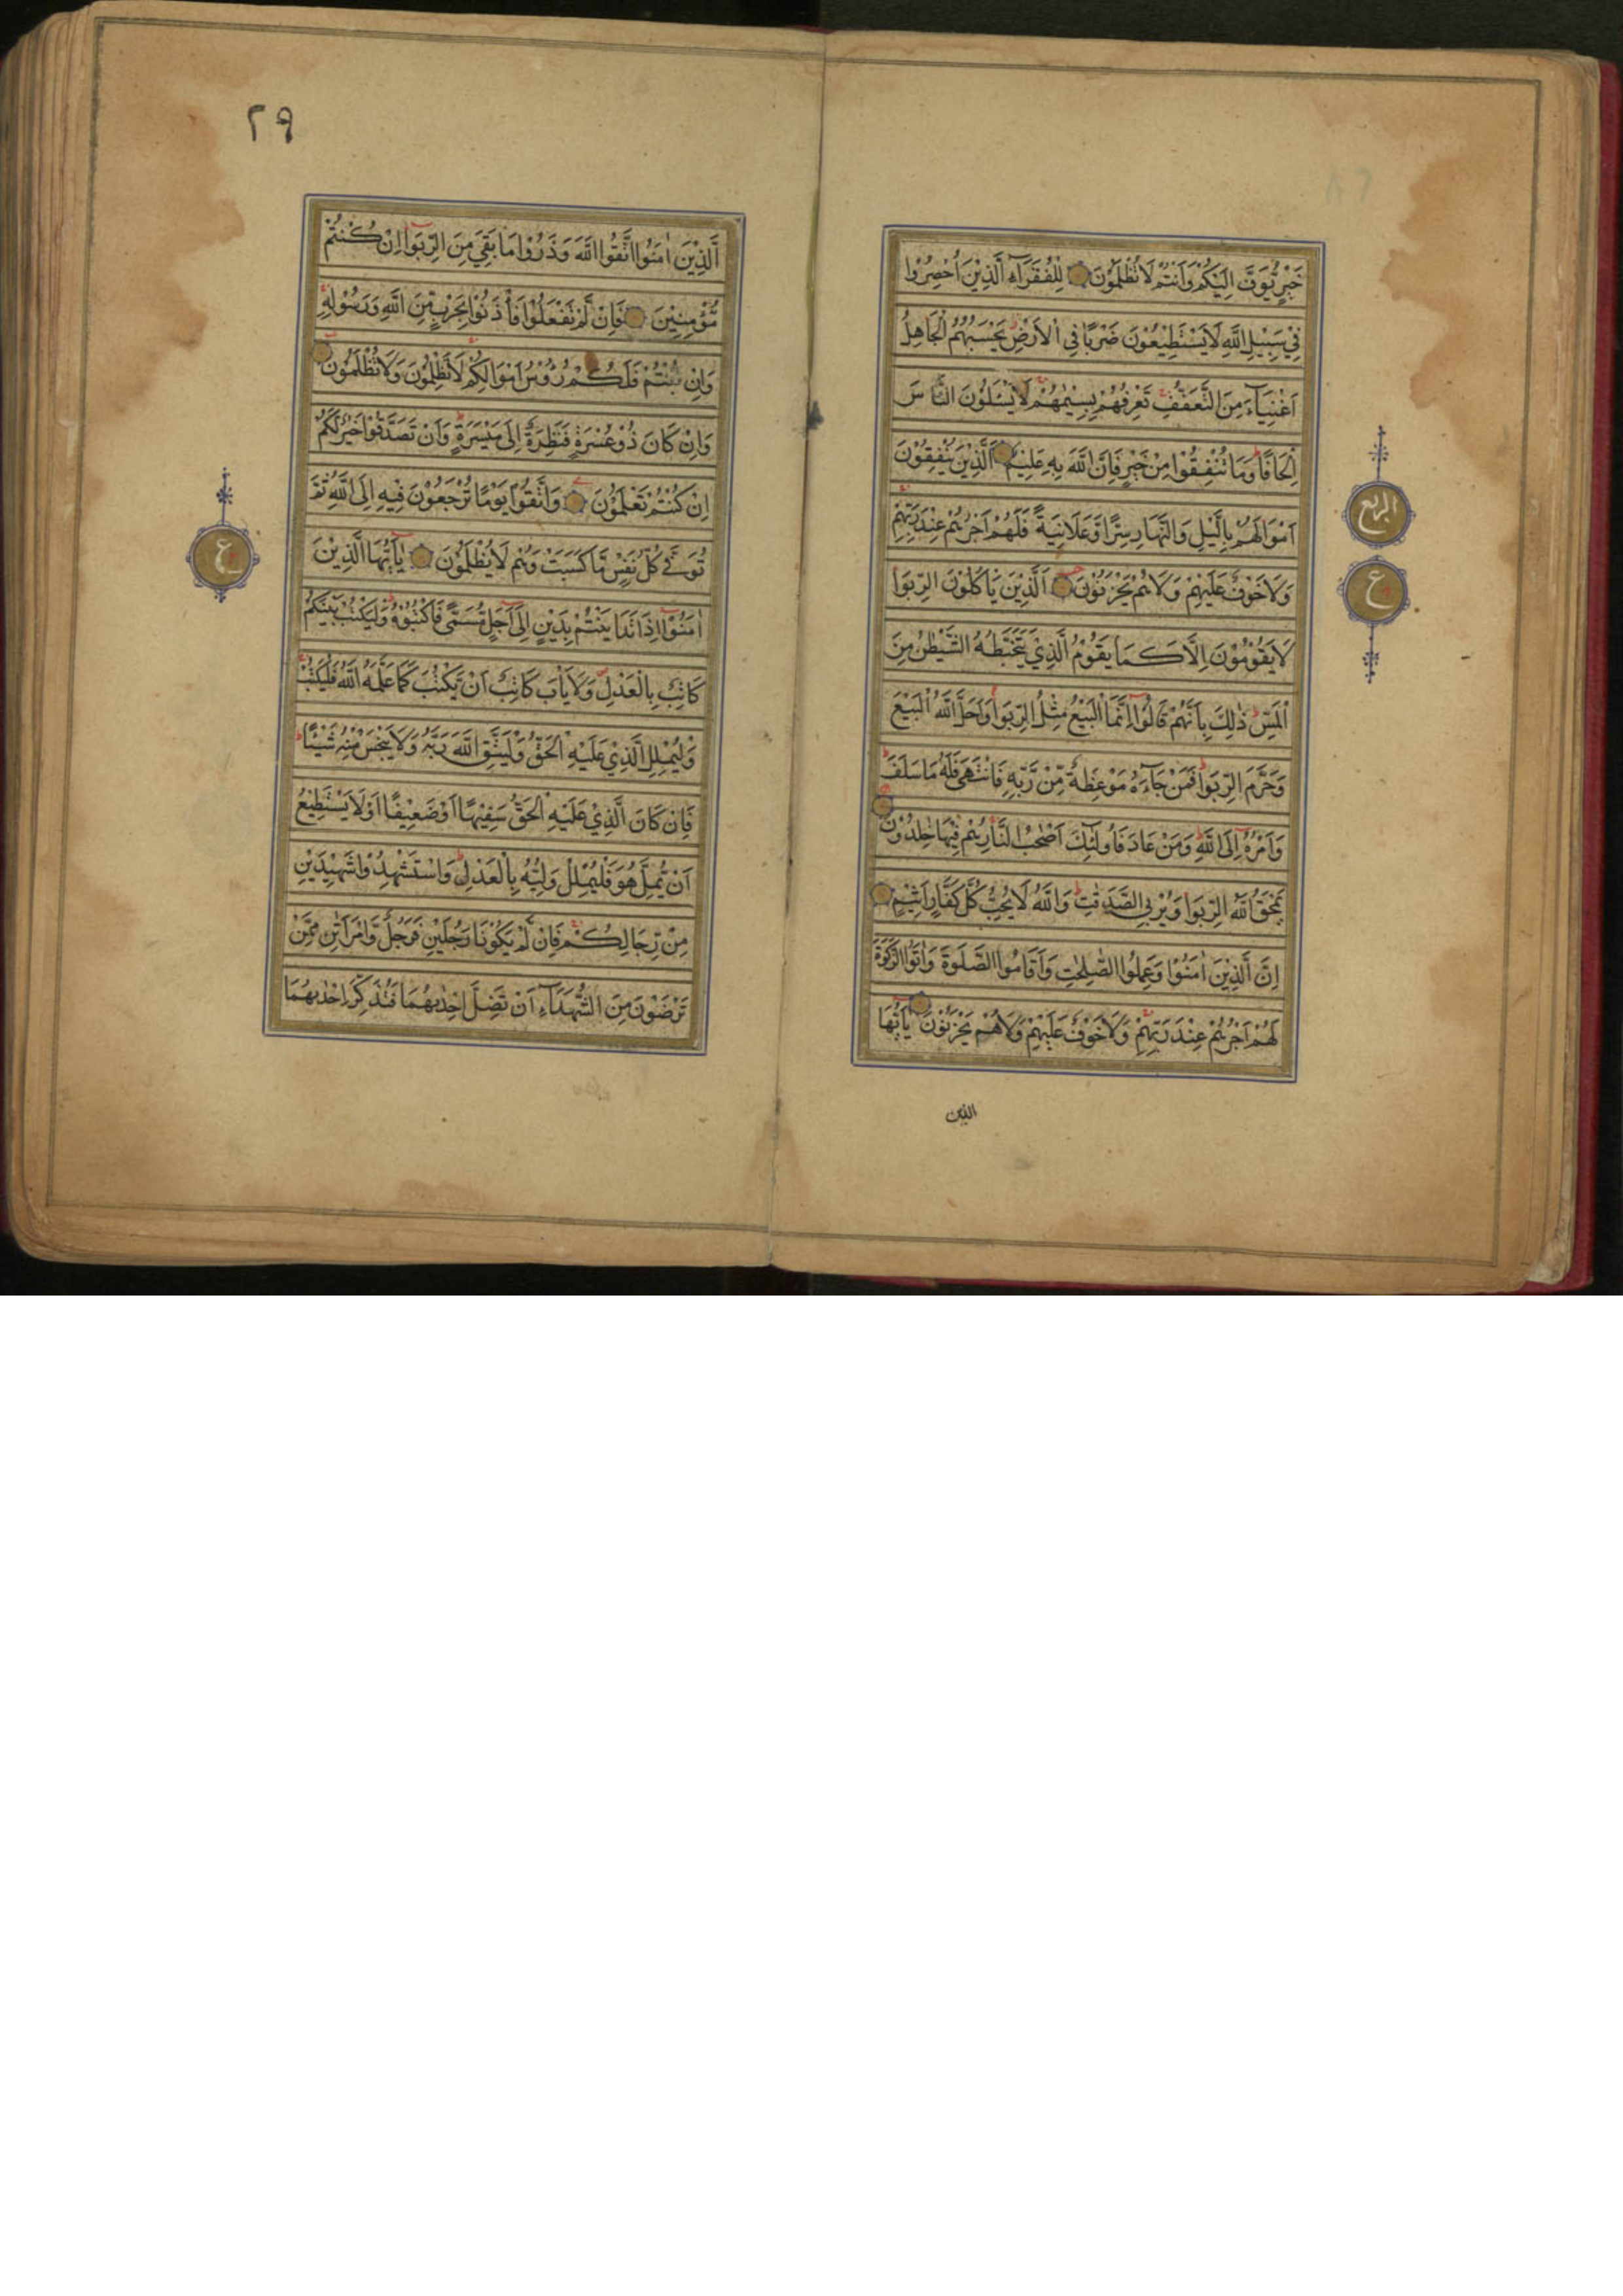 خَيْرٍ يُّوَفَّ اِلَيْكُمْ وَاَنْتُمْ لَا تُظْلَمُوْنَ لِلْفُقَرَآءِ الَّذِيْنَ اُحْصِرُوْا
فِيْ سَبِيْلِ اللّٰهِ لَا يَسْتَطِيْعُوْنَ ضَرْبًا فِي الْاَرْضِ يَحْسَبُهُمُ الْجَاهِلُ
اَغْنِيَآءَ مِنَ التَّعَفُّفِ تَعْرِفُهُمْ بِسِيْمٰهُمْ لَا يَسْئَلُوْنَ النَّاسَ
اِلْحَافًا وَمَا تُنْفِقُوْا مِنْ خَيْرٍ فَاِنَّ اللّٰهَ بِهٖ عَلِيْمٌ اَلَّذِيْنَ يُنْفِقُوْنَ
اَمْوَالَهُمْ بِالَّيْلِ وَالنَّهَارِ سِرًّا وَّعَلَانِيَةً فَلَهُمْ اَجْرُهُمْ عِنْدَ رَبِّهِمْ
وَلَا خَوْفٌ عَلَيْهِمْ وَلَا هُمْ يَحْزَنُوْنَ اَلَّذِيْنَ يَاْكُلُوْنَ الرِّبٰوا
لَا يَقُوْمُوْنَ اِلَّا كَمَا يَقُوْمُ الَّذِيْ يَتَخَبَّطُهُ الشَّيْطٰنُ مِنَ
الْمَسِّ ذٰلِكَ بِاَنَّهُمْ قَالُوْٓا اِنَّمَا الْبَيْعُ مِثْلُ الرِّبٰوا وَاَحَلَّ اللّٰهُ الْبَيْعَ
وَحَرَّمَ الرِّبٰوا فَمَنْ جَآءَهٗ مَوْعِظَةٌ مِّنْ رَّبِّهٖ فَانْتَهٰى فَلَهٗ مَا سَلَفَ
وَاَمْرُهٗٓ اِلَى اللّٰهِ وَمَنْ عَادَ فَاُولٰٓئِكَ اَصْحٰبُ النَّارِ هُمْ فِيْهَا خٰلِدُوْنَ
يَمْحَقُ اللّٰهُ الرِّبٰوا وَيُرْبِي الصَّدَقٰتِ وَاللّٰهُ لَا يُحِبُّ كُلَّ كَفَّارٍ اَثِيْمٍ
اِنَّ الَّذِيْنَ اٰمَنُوْا وَعَمِلُوا الصّٰلِحٰتِ وَاَقَامُوا الصَّلٰوةَ وَاٰتَوُا الزَّكٰوةَ
لَهُمْ اَجْرُهُمْ عِنْدَ رَبِّهِمْ وَلَا خَوْفٌ عَلَيْهِمْ وَلَا هُمْ يَحْزَنُوْنَ يٰٓاَيُّهَا
الذين
الربع
ع
٢٩
الَّذِيْنَ اٰمَنُوا اتَّقُوا اللّٰهَ وَذَرُوْا مَا بَقِيَ مِنَ الرِّبٰوٓا اِنْ كُنْتُمْ
مُّؤْمِنِيْنَ فَاِنْ لَّمْ تَفْعَلُوْا فَاْذَنُوْا بِحَرْبٍ مِّنَ اللّٰهِ وَرَسُوْلِهٖ
وَاِنْ تُبْتُمْ فَلَكُمْ رُءُوْسُ اَمْوَالِكُمْ لَا تَظْلِمُوْنَ وَلَا تُظْلَمُوْنَ
وَاِنْ كَانَ ذُوْ عُسْرَةٍ فَنَظِرَةٌ اِلٰى مَيْسَرَةٍ وَاَنْ تَصَدَّقُوْا خَيْرٌ لَّكُمْ
اِنْ كُنْتُمْ تَعْلَمُوْنَ وَاتَّقُوْا يَوْمًا تُرْجَعُوْنَ فِيْهِ اِلَى اللّٰهِ ثُمَّ
تُوَفّٰى كُلُّ نَفْسٍ مَّا كَسَبَتْ وَهُمْ لَا يُظْلَمُوْنَ يٰٓاَيُّهَا الَّذِيْنَ
اٰمَنُوْٓا اِذَا تَدَايَنْتُمْ بِدَيْنٍ اِلٰٓى اَجَلٍ مُّسَمًّى فَاكْتُبُوْهُ وَلْيَكْتُبْ بَّيْنَكُمْ
كَاتِبٌ بِالْعَدْلِ وَلَا يَاْبَ كَاتِبٌ اَنْ يَّكْتُبَ كَمَا عَلَّمَهُ اللّٰهُ فَلْيَكْتُبْ
وَلْيُمْلِلِ الَّذِيْ عَلَيْهِ الْحَقُّ وَلْيَتَّقِ اللّٰهَ رَبَّهٗ وَلَا يَبْخَسْ مِنْهُ شَيْئًا
فَاِنْ كَانَ الَّذِيْ عَلَيْهِ الْحَقُّ سَفِيْهًا اَوْ ضَعِيْفًا اَوْ لَا يَسْتَطِيْعُ
اَنْ يُّمِلَّ هُوَ فَلْيُمْلِلْ وَلِيُّهٗ بِالْعَدْلِ وَاسْتَشْهِدُوْا شَهِيْدَيْنِ
مِنْ رِّجَالِكُمْ فَاِنْ لَّمْ يَكُوْنَا رَجُلَيْنِ فَرَجُلٌ وَّامْرَاَتٰنِ مِمَّنْ
تَرْضَوْنَ مِنَ الشُّهَدَآءِ اَنْ تَضِلَّ اِحْدٰىهُمَا فَتُذَكِّرَ اِحْدٰىهُمَا
ع